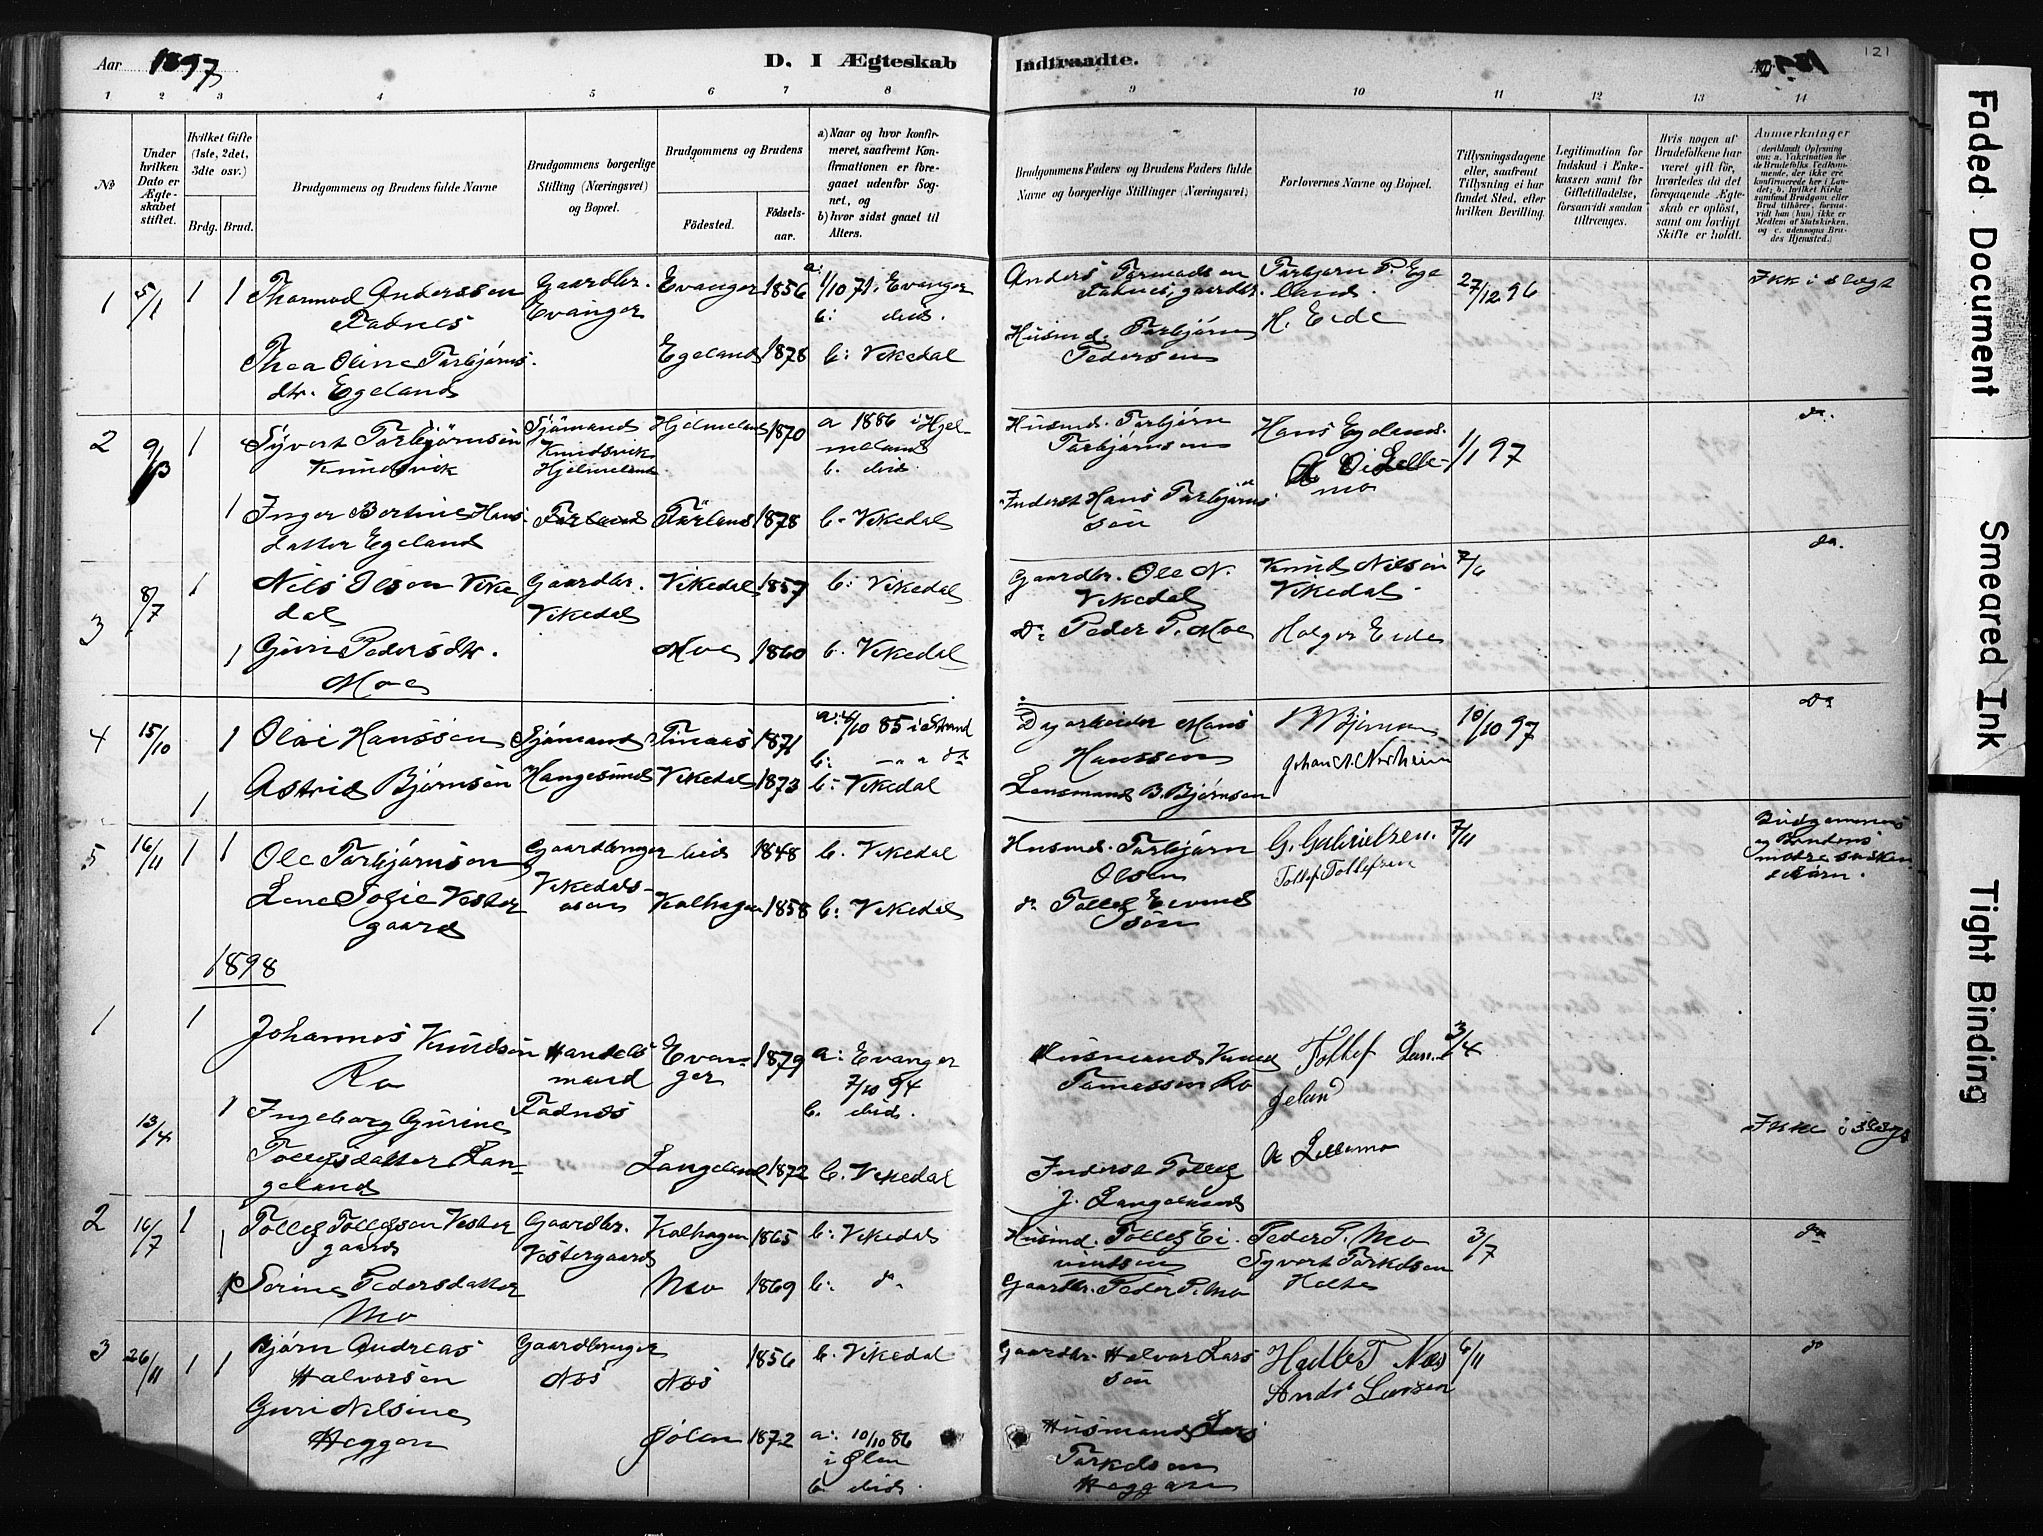 Aar 1897
D. I Ægteskab
Indtraadte.
121
1 2 3 4 5 6 7 8
9 10 11 12 13 14
No
Under hvilken Dato er Ægteskabet stiftet.
Hvilket Gifte (1ste, 2det, 3die osv.)
Brdg. Brud.
Brudgommens og Brudens fulde Navne
Brudgommens borgerlige Stilling (Næringsvei) og Bopæl.
Brudgommens og Brudens
Fødested.
Fødselsaar.
a) Naar og hvor konfirmeret, saafremt Konfirmationen er foregaaet udenfor Sognet, og
b) hvor sidst gaaet til Alters.
Brudgommens Faders og Brudens Faders fulde Navne og borgerlige Stillinger (Næringsvei)
Forlovernes Navne og Bopæl.
Tillysningsdagene eller, saafremt Tillysning ei har fundet Sted, efter hvilken Bevilling.
Legitimation for Indskud i Enkekassen samt for Giftetilladelse, forsaavidt saadan tiltrænges.
Hvis nogen af Brudefolkene har været gift før, hvorledes da det foregaaende Ægteskab er opløst, samt om lovligt Skifte er holdt.
Anmærkninger
1 5/1 1 1 Thormod Anderssen Gaardbr. Evanger 1856 a: 1/10 71. Evanger
Fadnes Evanger b: ibid.
Thea Oline Torbjørns- Egeland 1878 b: Vikedal
dtr. Egeland
Anders Tormodsen Torbjørn P. Ege- 27/12 96 Ikke i slægt
Fadnes, gaardbr. land.
Husmd. Torbjørn H. Eide
Pedersen
2 9/3 1 Syvert Torbjørnsen Sjømand Hjelmeland 1870 a 1886 i Hjel-
Knudsvik Knudsvik meland
Hjelmeland b. ibid.
1 Inger Bertine Hans- Førland Førland 1878 b. Vikedal
datter Egeland
Husmd. Torbjørn Hans Egeland. 1/1 97 do.
Torbjørnsen
Inderst Hans Torbjørn-
søn
3 8/7 1 Nils Olson Vike- Gaardbr. Vikedal 1857 b: Vikedal
dal Vikedal
1 Guri Pedersdtr. Moe 1860 b. Vikedal
Moe
Gaardbr. Ole N. Knud Nilsen 7/6 do.
Vikedal Vikedal.
Do Peder P. Moe Holger Eide
4 15/10 1 Olai Hanssen Sjømand 1871 a: 4/10 85 i Strand
b: do
1 Astrid Bjørnsen Haugesund Vikedal 1873 b: Vikedal
Dagarbeider Hans 10/10 97 do
Hanssen Johan A. Nordheim
Lensmand B. Bjørnsen
5 16/11 1 1 Ole Torbjørnsen Gaardbruger ibid 1848 b. Vikedal
Lene Sofie Vester- Vikedals- Kalhagen 1858 b: Vikedal
gaard aasen
Husmd. Torbjørn G. Gabrielsen. 7/11 Brudgommens
Olsen Tollef Tollefsen og Brudens
do Tollef Eivind- mødre søsken-
søn debørn.
1898
1 1 Johannes Knudsen Handels- Evan- 1879 a: Evanger
Ro mand ger 7/10 94
13/4 1 Ingeborg Gurine Fadnes b. ibid.
Tollefsdatter Lan- Langeland 1872 b. Vikedal
geland
Husmand Knud Tollef Lan- 3/4
Tomassen Ro geland
Ikke i slægt
Inderst Tollef A Lillemo
J. Langeland
2 16/7 1 1 Tollef Tollefsen Vester- Gaardbr. Kalhagen 1865 b: Vikedal
gaard Vestergaard
1 Serine Pedersdatter Mo 1869 b: do.
Mo
Husmd. Tollef Ei- Peder P. Mo 3/7 do
vindsen Syvert Torkelsen
Gaardbr. Peder P. Mo Holte
3 26/11 1 1 Bjørn Andreas Gaardbruger 1856 b. Vikedal
Halvorsen Nes Nes
Guri Nilsine
Heggen Ølen 1872 a: 10/10 86
i Ølen
b. ibid.
Gaardbr. Halvor Lars- 6/11 do
søn Andr Larsen
Husmand Lars
Torkelsen
Heggen
Faded Document
Smeared Ink
Tight Binding